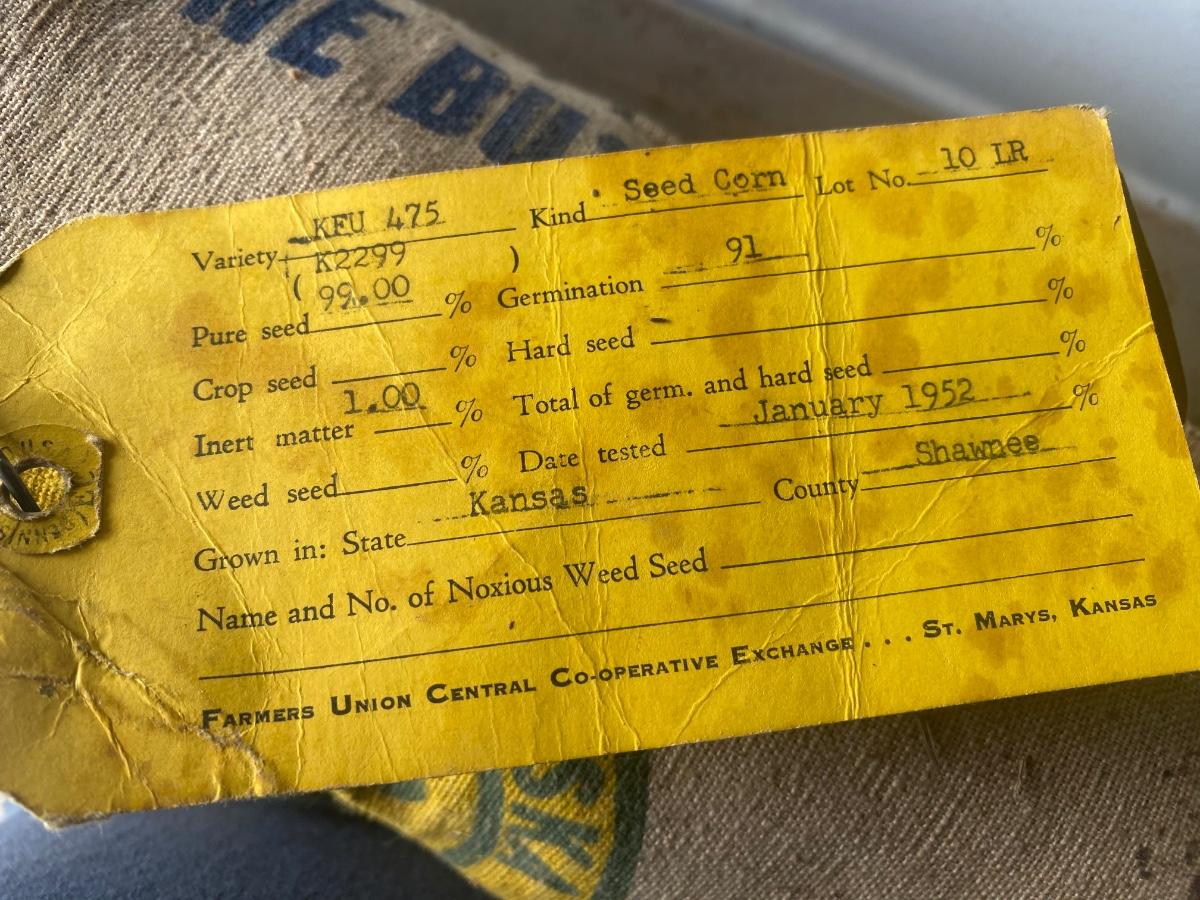 NE BU
Variety KFU 475 Kind Seed Corn Lot No. 10 LR
( K2299 )
Pure seed 99.00 % Germination 91 %
Crop seed % Hard seed - %
Inert matter 1.00 % Total of germ. and hard seed %
Weed seed % Date tested January 1952 %
Grown in: State Kansas County Shawnee
Name and No. of Noxious Weed Seed
FARMERS UNION CENTRAL CO-OPERATIVE EXCHANGE . . . ST. MARYS, KANSAS